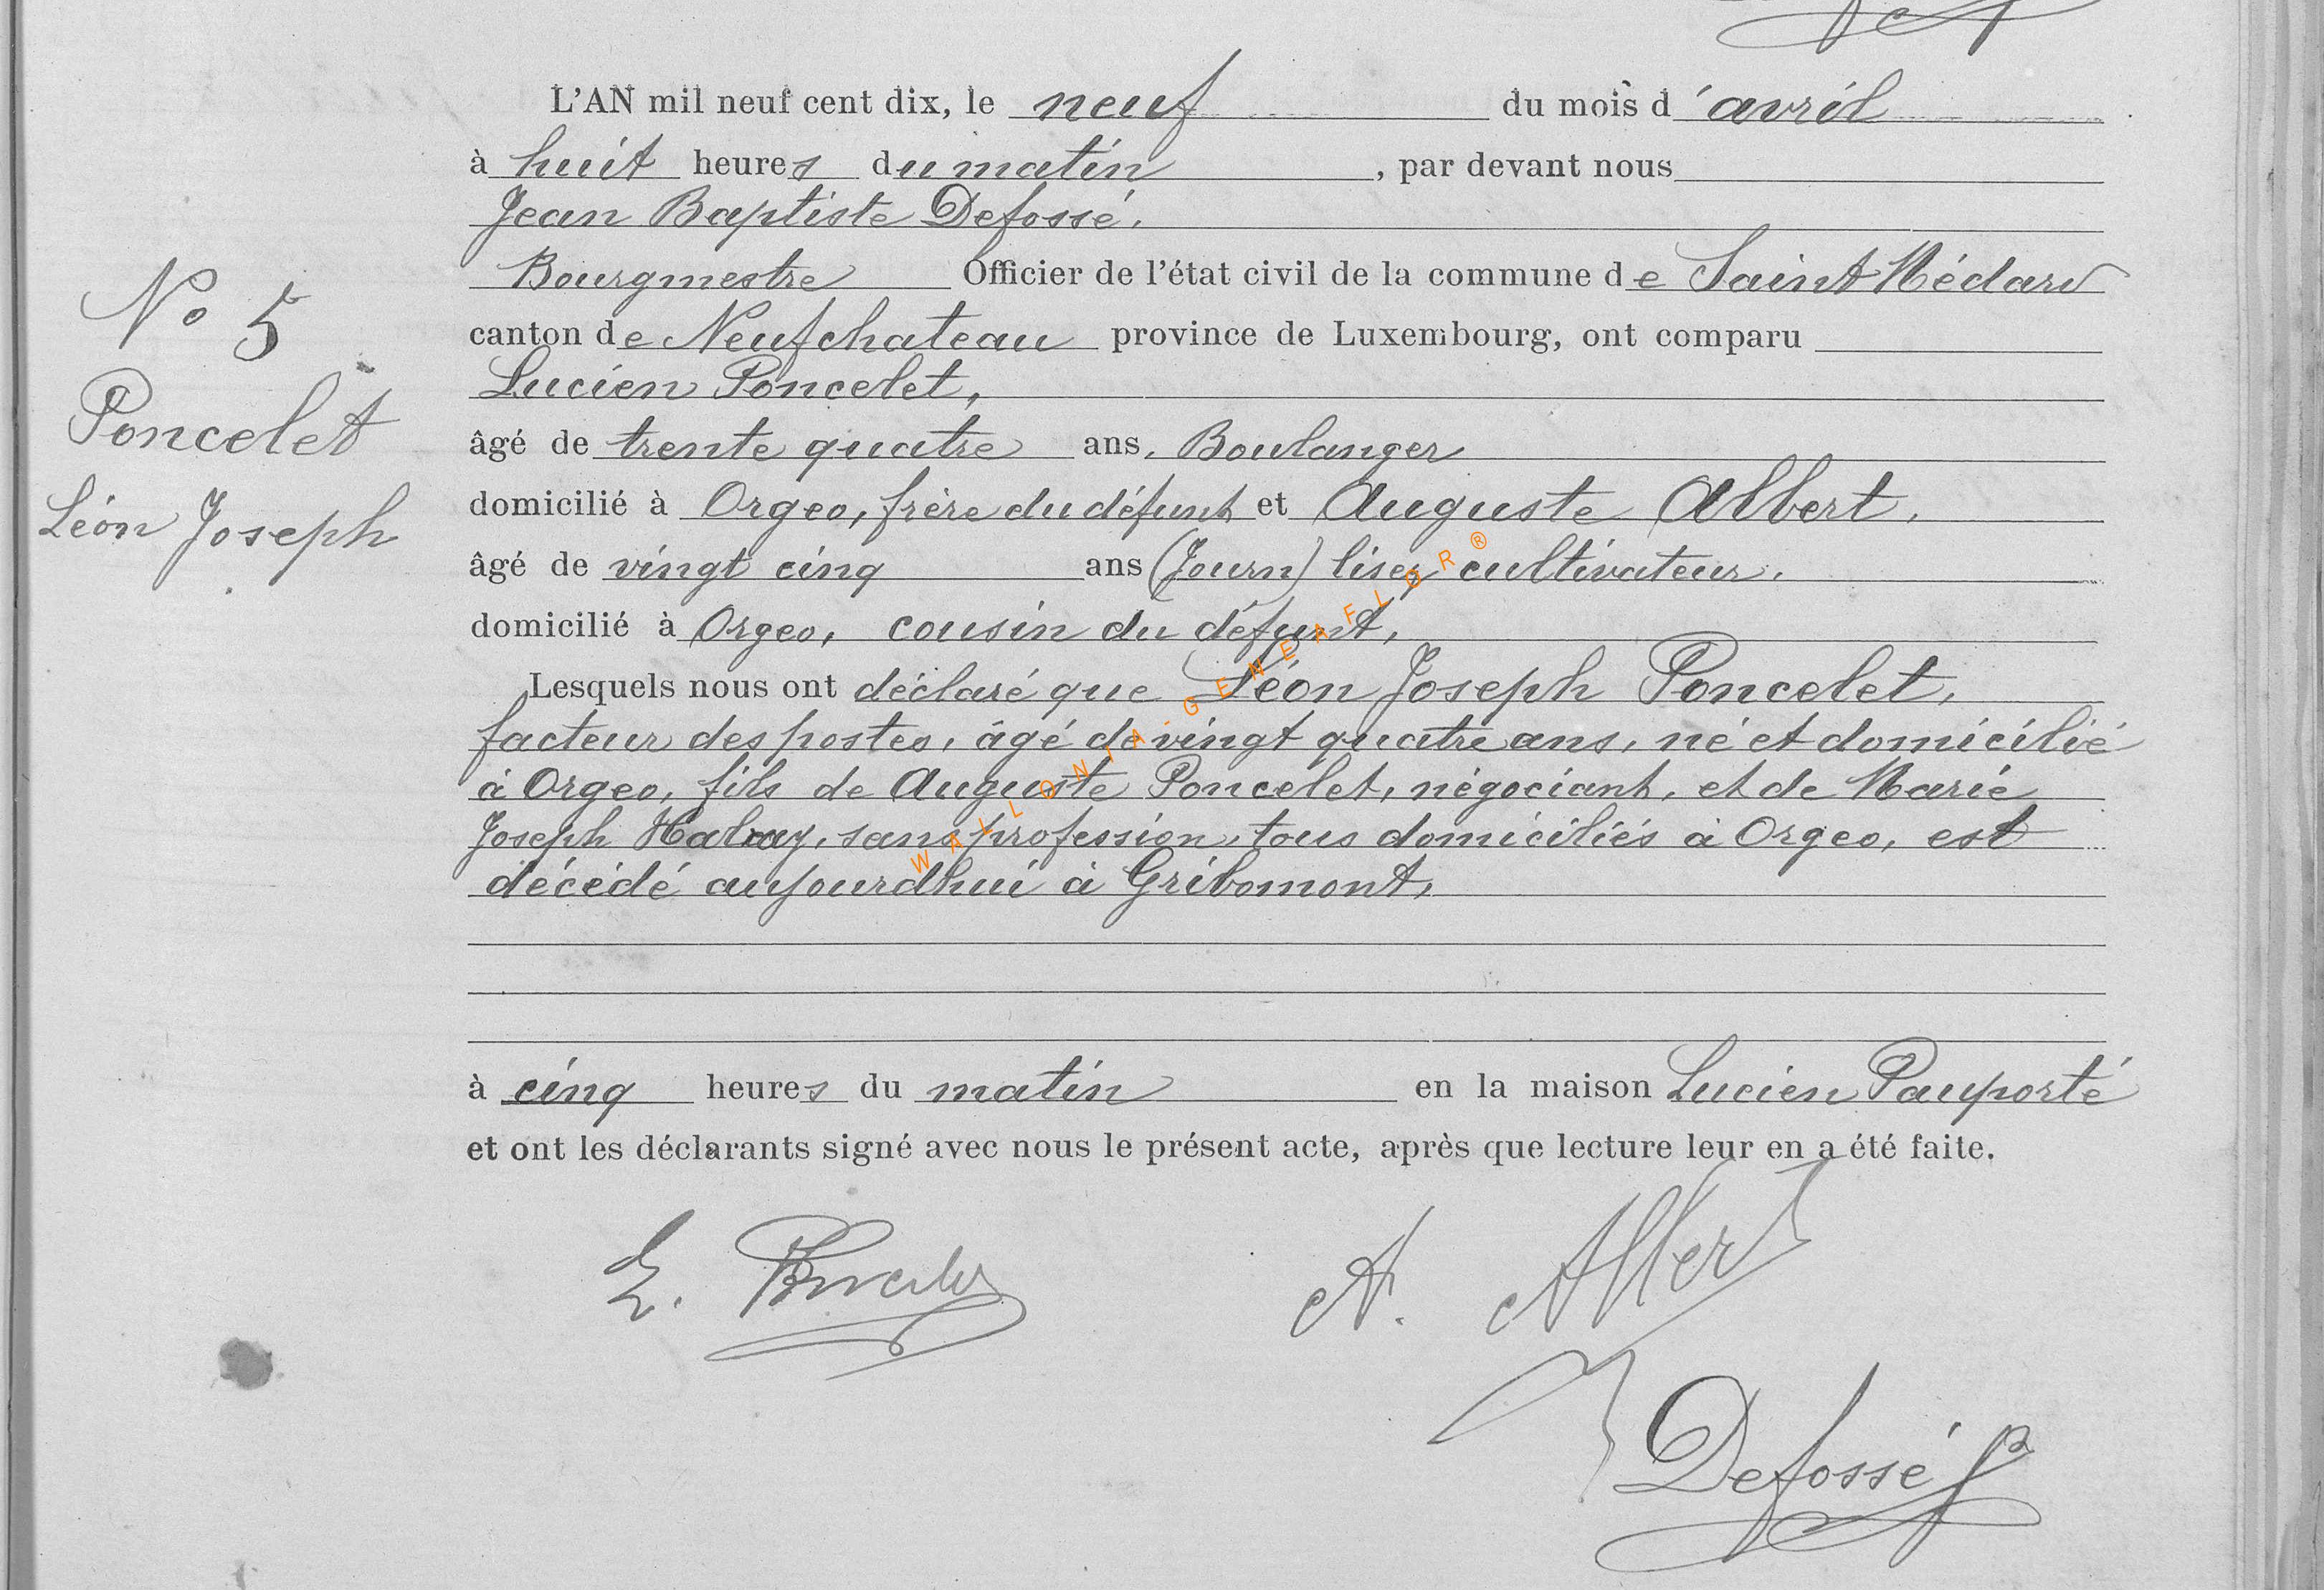 L'AN mil neuf cent dix, le neuf du mois d'avril
à huit heures du matin, par devant nous
Jean Baptiste Defossé,
Bourgmestre Officier de l'état civil de la commune de Saint Médard
canton de Neufchateau province de Luxembourg, ont comparu
Lucien Poncelet,
âgé de trente quatre ans, Boulanger
domicilié à Orgeo, frère du défunt et Auguste Albert,
âgé de vingt cinq ans (Journ) lisez cultivateur,
domicilié à Orgeo, cousin du défunt,
Lesquels nous ont déclaré que Léon Joseph Poncelet,
facteur des postes, âgé de vingt quatre ans, né et domicilié
à Orgeo, fils de Auguste Poncelet, négociant, et de Marie
Joseph Halauy, sans profession, tous domiciliés à Orgeo, est
décédé aujourdhui à Gribomont,
à cinq heures du matin en la maison Lucien Pauporté
et ont les déclarants signé avec nous le présent acte, après que lecture leur en a été faite.
No 5
Poncelet
Léon Joseph
L. Poncelet
A. Albert
Defossé
WALLONIA-GENEAFLOR®